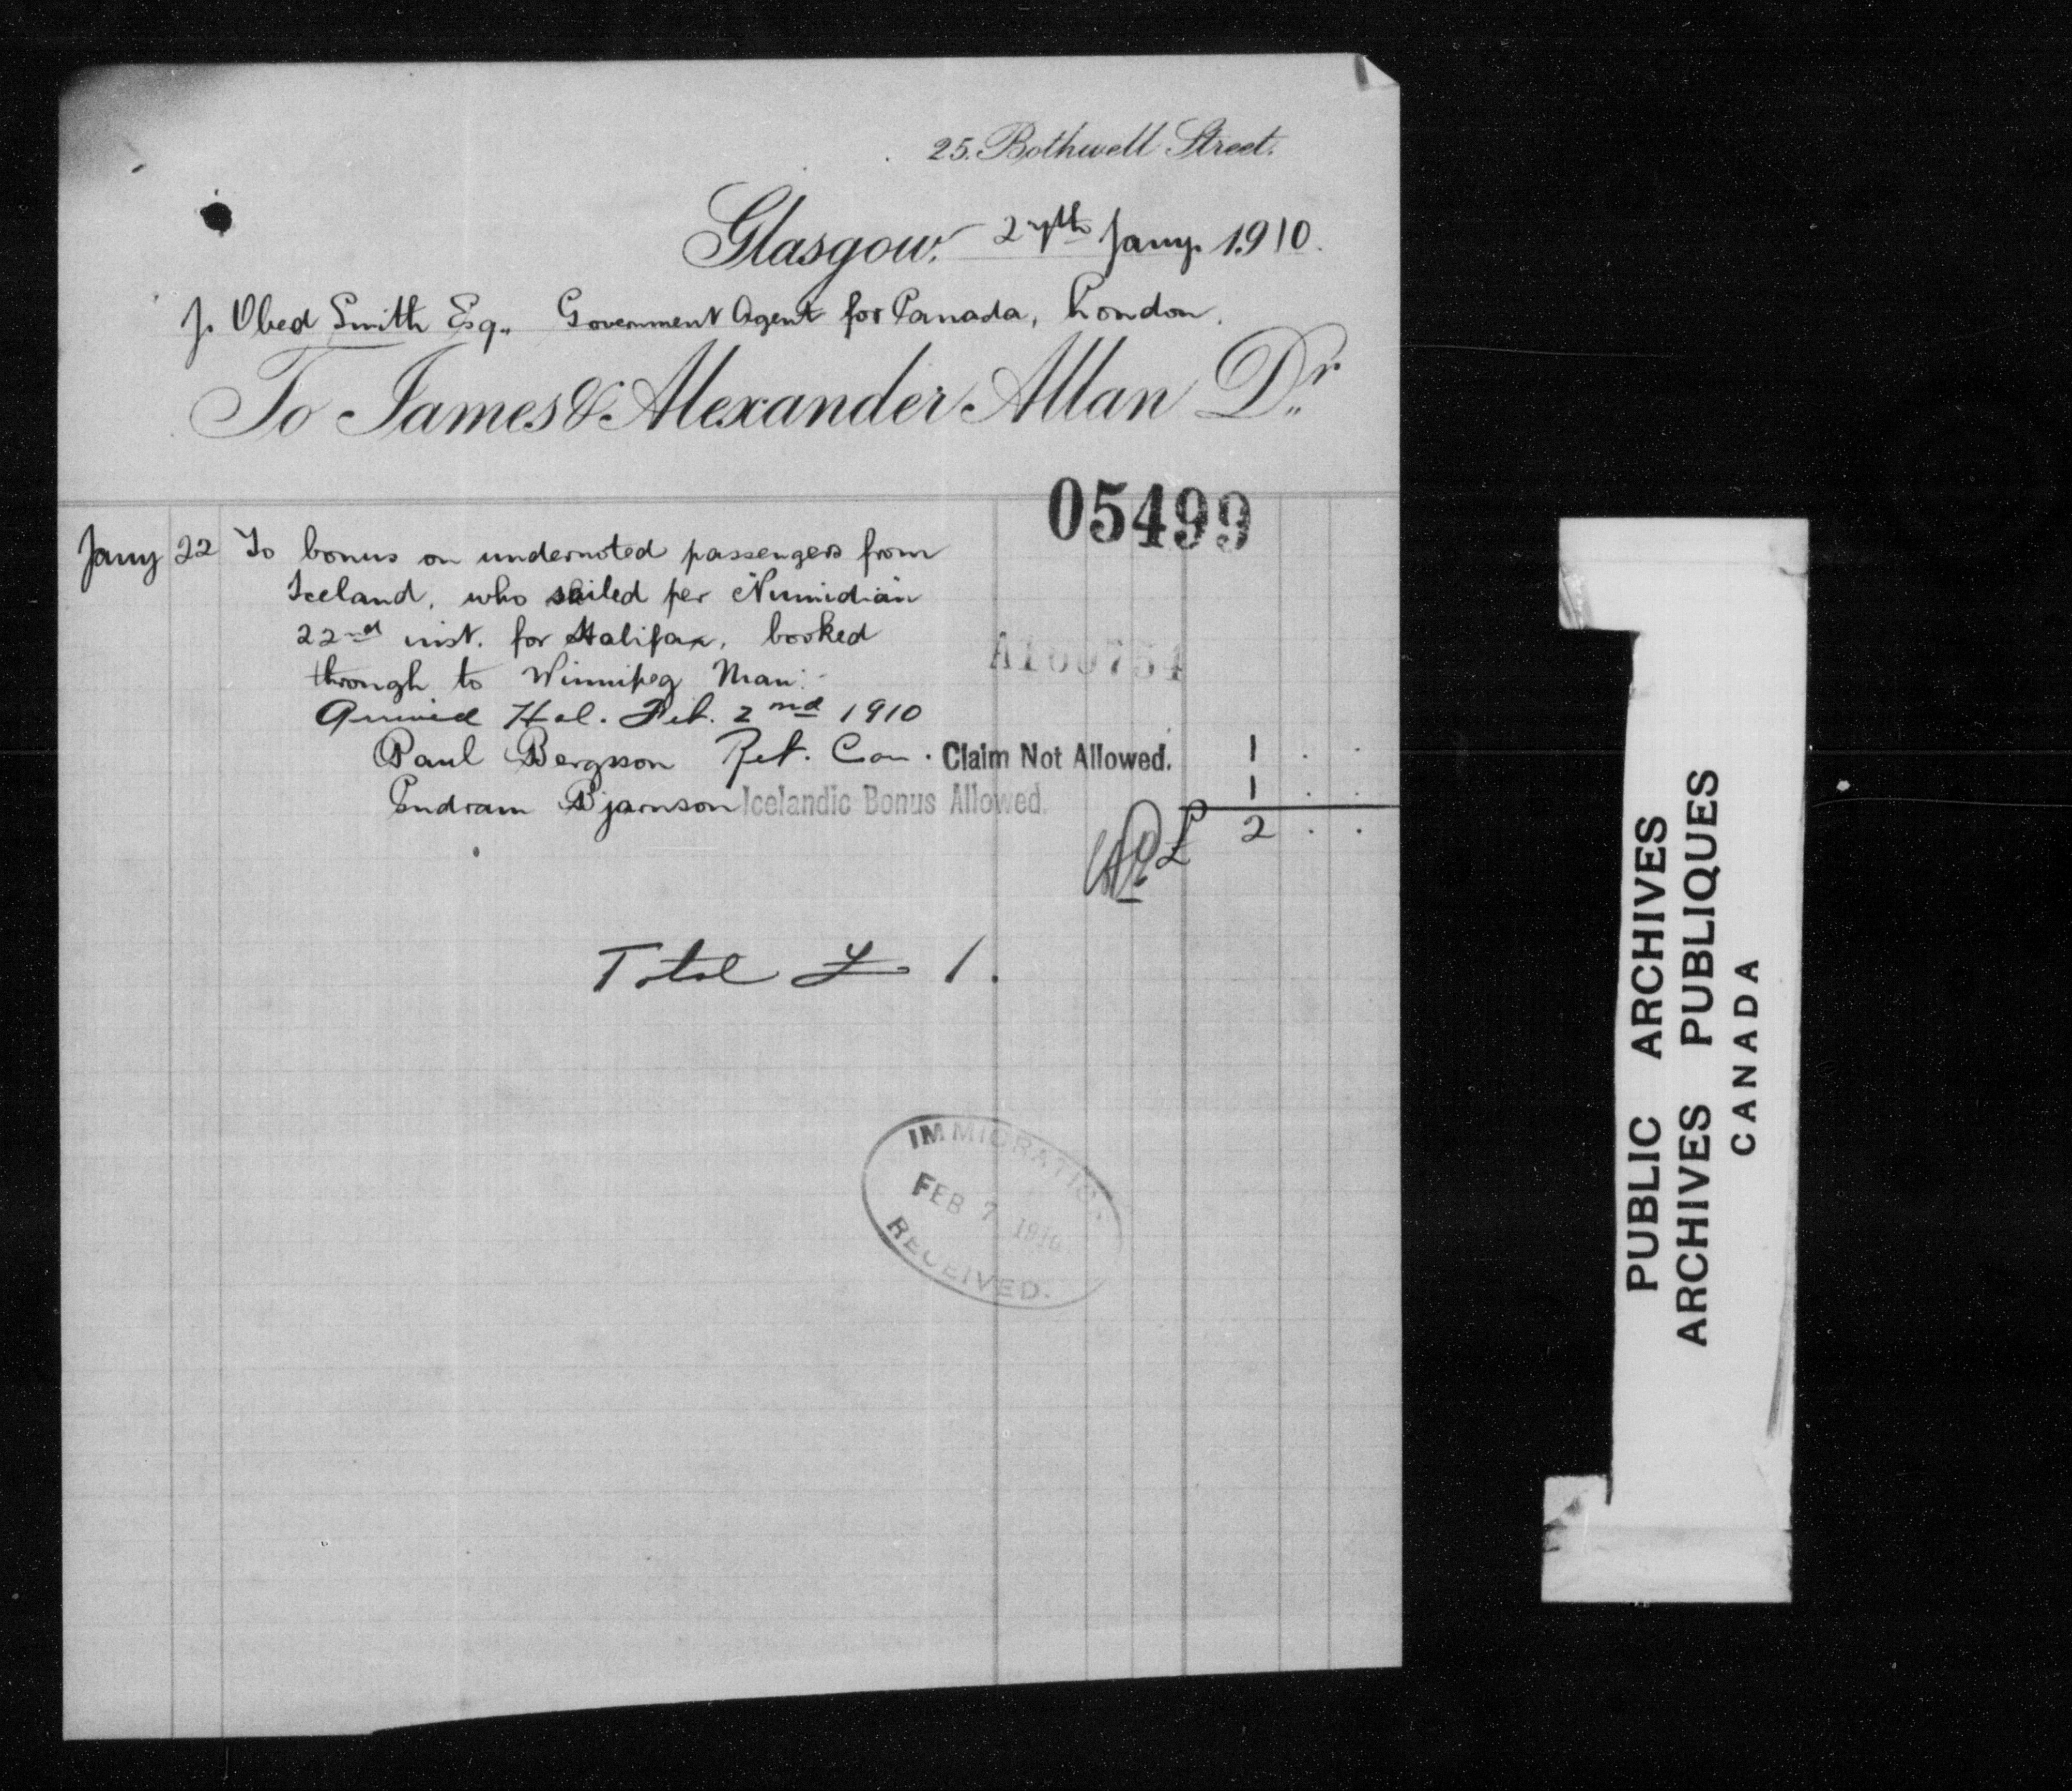 25. Bothwell Street.
Glasgow, 27th Jany. 1910.
J. Obed Smith Esq., Government Agent for Canada, London.
To James & Alexander Allan Dr.
05499
Jany 22 To bonus on undernoted passengers from
Iceland, who sailed per Numidian
22nd inst. for Halifax, booked
through to Winnipeg Man:-
A160754
Arrived Hal. Feb. 2nd 1910
Paul Bergsson Ret. Can. Claim Not Allowed. 1 . .
Endram Bjarnson Icelandic Bonus Allowed. 1 . .
£ 2 . .
Total £ 1.
IMMIGRATION
FEB 7 1910
RECEIVED.
PUBLIC ARCHIVES
ARCHIVES PUBLIQUES
CANADA